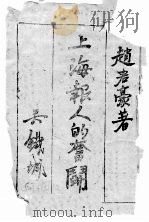 趙君豪著
上海報人的奮鬪
吳鐵城
mtoou.info